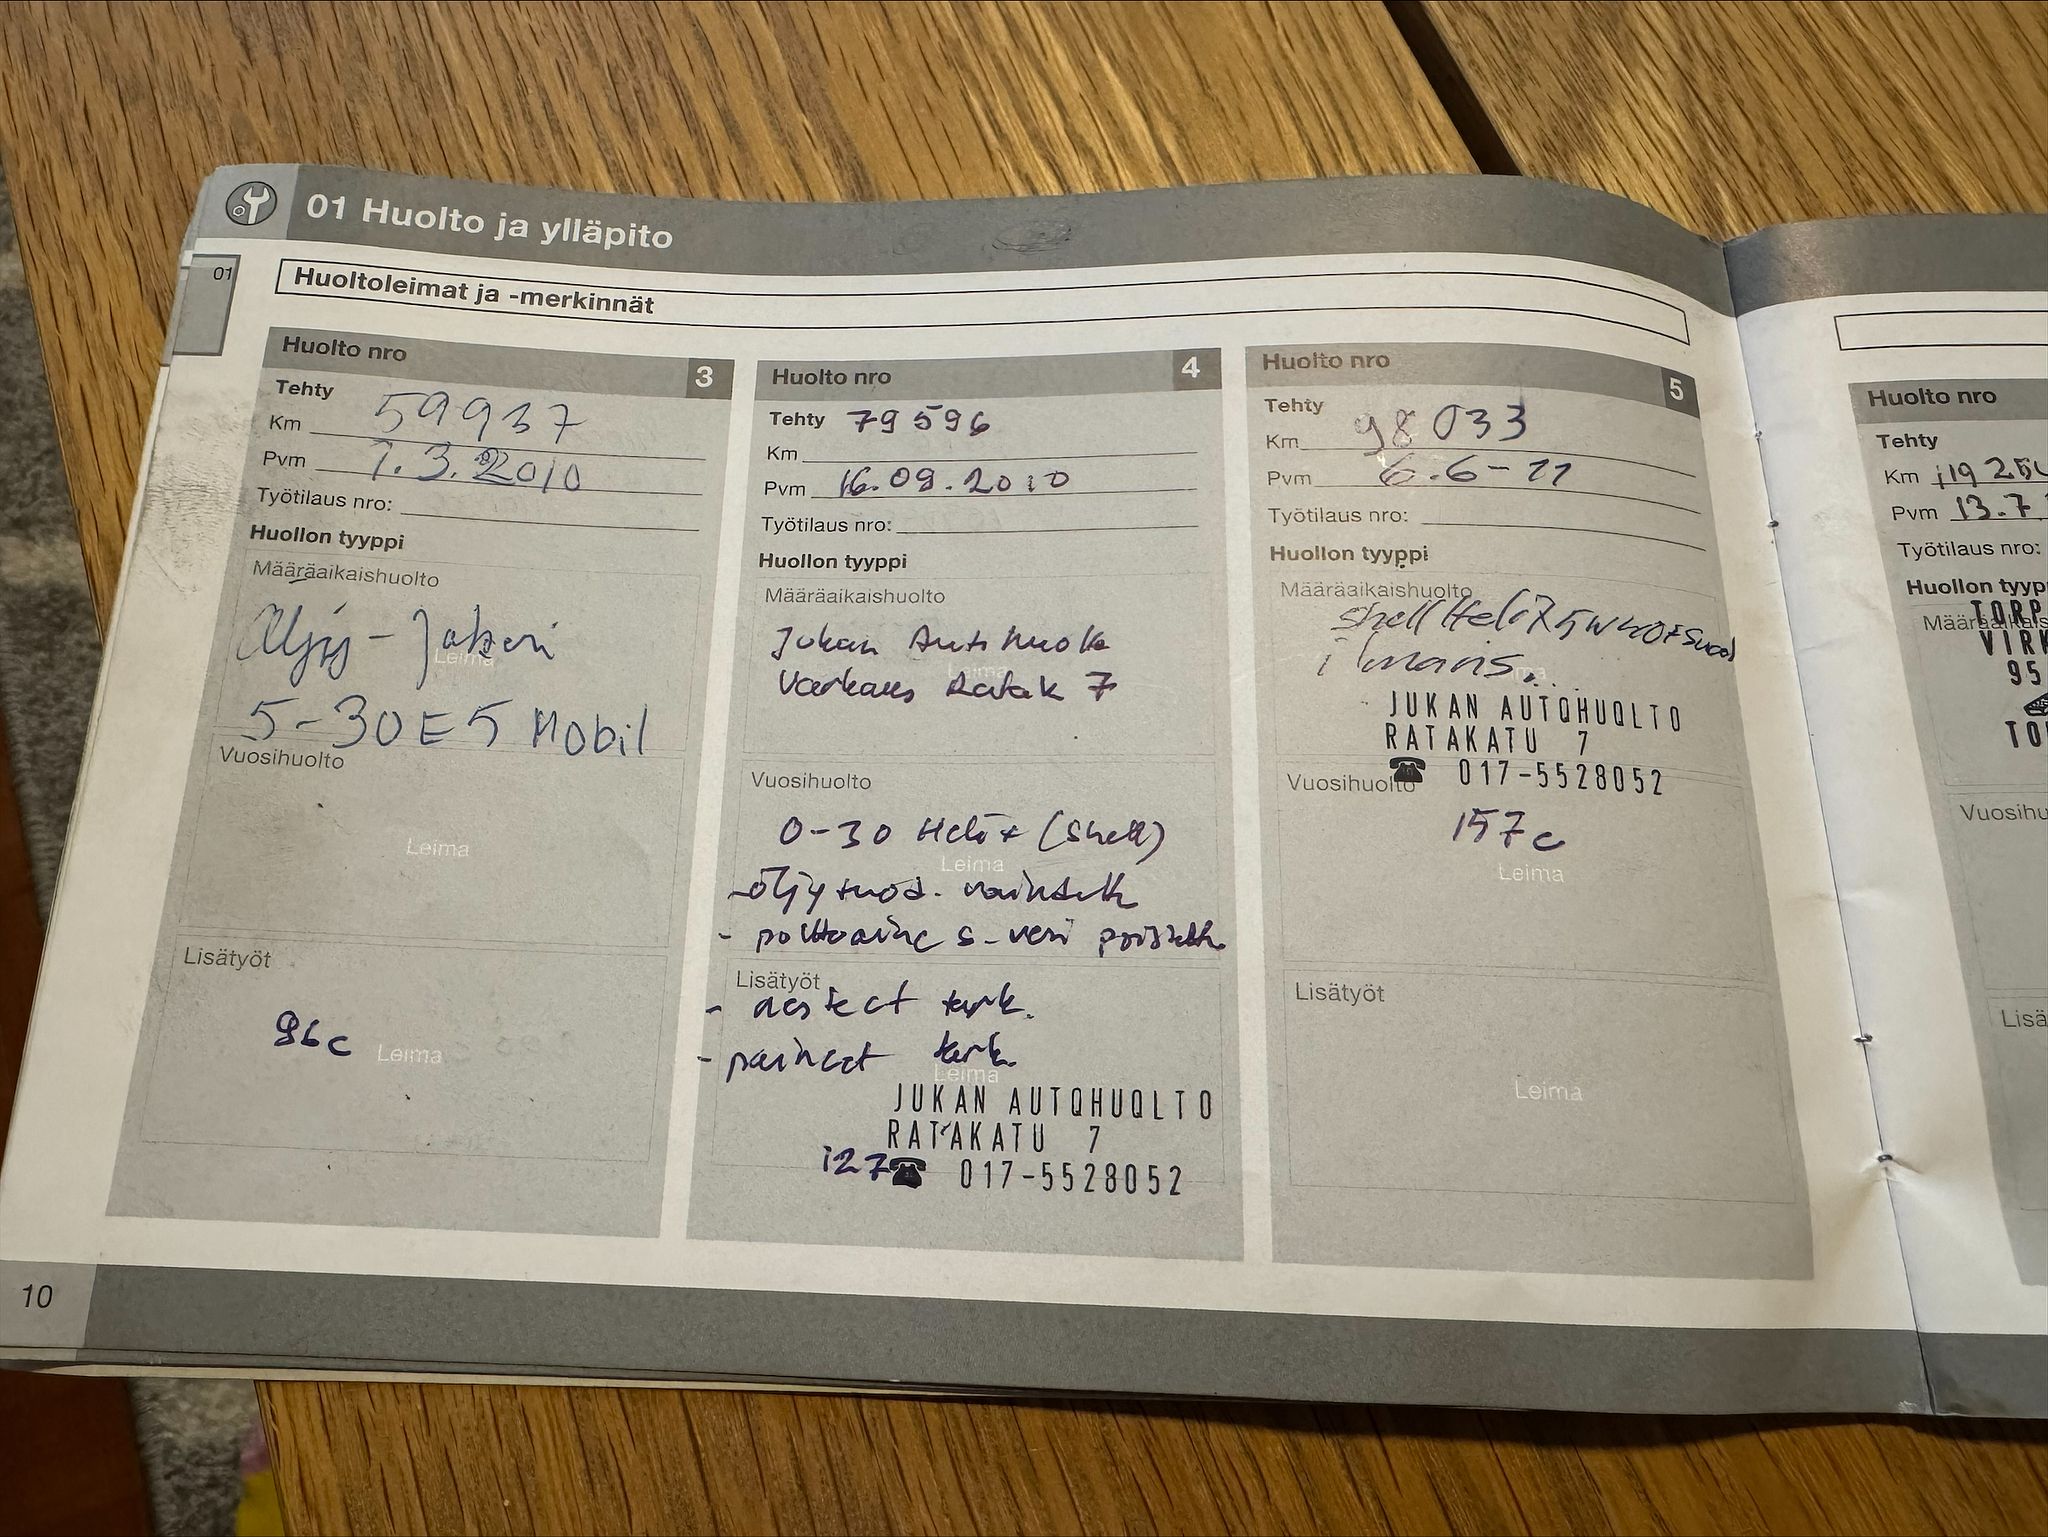 01 Huolto ja ylläpito
01
Huoltoleimat ja -merkinnät
Huolto nro 3
Tehty
Km 59937
Pvm 1.3.2010
Työtilaus nro:
Huollon tyyppi
Määräaikaishuolto
Leima
5-30 E5 Mobil
Vuosihuolto
Leima
Lisätyöt
Leima
Huolto nro 4
Tehty 79596
Km
Pvm 16.09.2010
Työtilaus nro:
Huollon tyyppi
Määräaikaishuolto
Jukan
Leima
Varkaus 7
Vuosihuolto
0-30 Helix (Shell)
Leima
- öljy
- polttoaine s. vesi
Lisätyöt
- nesteet tark.
- paineet tark.
Leima
JUKAN AUTOHUOLTO
RATAKATU 7
127 ☎ 017-5528052
Huolto nro 5
Tehty
Km 98033
Pvm 6.6-11
Työtilaus nro:
Huollon tyyppi
Määräaikaishuolto
Shell Helix 5W40
JUKAN AUTOHUOLTO
RATAKATU 7
☎ 017-5528052
Vuosihuolto
157c
Leima
Lisätyöt
Leima
Huolto nro
Tehty
Km
Pvm 13.7
Työtilaus nro:
Huollon tyyp
TORP
Määräaikais
VIRK
95
TO
Vuosihu
Lisä
10